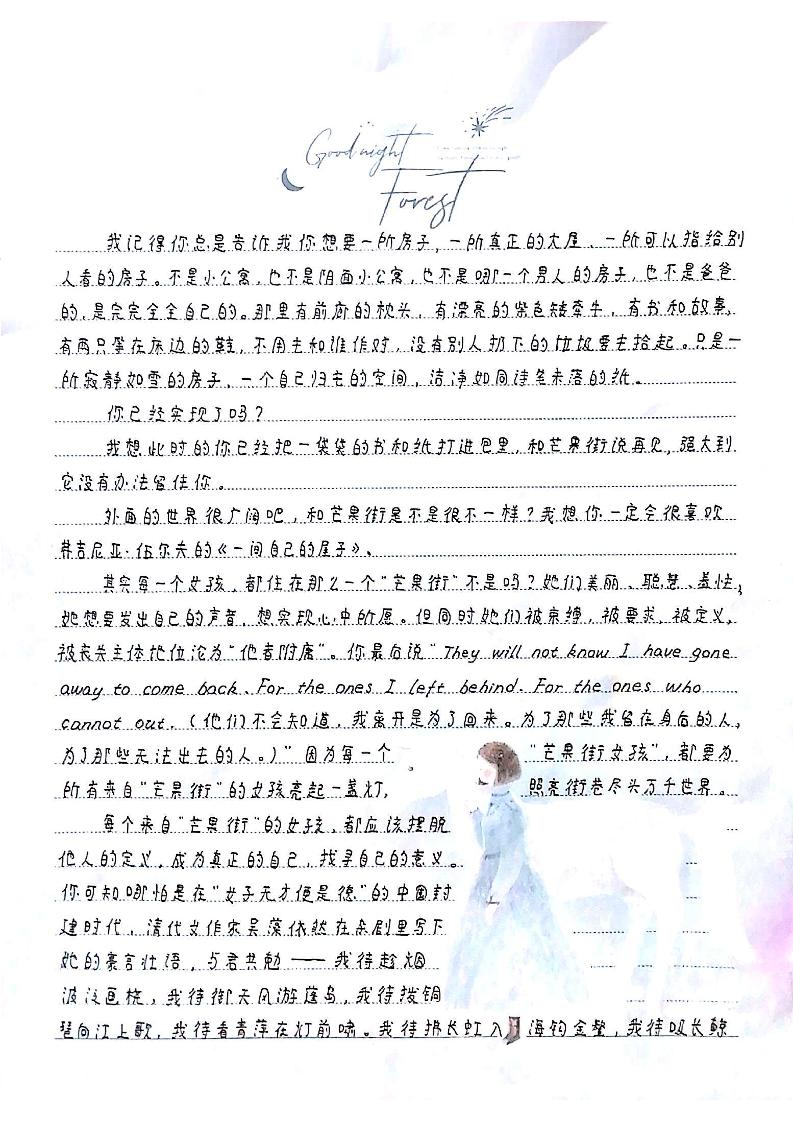 Good night
Forest
我记得你总是告诉我你想要一所房子,一所真正的大屋、一所可以指给别
人看的房子。不是小公寓,也不是阴面小公寓,也不是哪一个男人的房子,也不是爸爸
的,是完完全全自己的。那里有前廊的枕头,有漂亮的紫色矮牵牛,有书和故事,
有两只等在床边的鞋,不用去和谁作对,没有别人扔下的垃圾要去拾起。只是一
所寂静如雪的房子,一个自己归去的空间,洁净如同诗笔未落的纸。
你已经实现了吗?
我想此时的你已经把一袋袋的书和纸打进包里,和芒果街说再见,强大到
它没有办法留住你。
外面的世界很广阔吧,和芒果街是不是很不一样?我想你一定会很喜欢
弗吉尼亚·伍尔夫的《一间自己的屋子》、
其实每一个女孩,都住在那么一个“芒果街”不是吗?她们美丽、聪慧、羞怯,
她想要发出自己的声音,想实现心中所愿。但同时她们被束缚,被要求,被定义,
被丧失主体地位沦为“他者附庸”。你最后说“They will not know I have gone
away to come back. For the ones I left behind. For the ones who
cannot out.(他们不会知道,我离开是为了回来。为了那些我留在身后的人,
为了那些无法出去的人。)”因为每一个 “芒果街女孩”,都要为
所有来自“芒果街”的女孩亮起一盏灯, 照亮街巷尽头万千世界。
每个来自“芒果街”的女孩,都应该摆脱
他人的定义,成为真正的自己,找寻自己的意义。
你可知哪怕是在“女子无才便是德”的中国封
建时代,清代女作家吴藻依然在杂剧里写下
她的豪言壮语,与君共勉——我待趁烟
波泛画桡,我待御天风游蓬岛,我待拨铜
琶向江上歌,我待看青萍在灯前啸。我待拂长虹入 海钓金鳌,我待吸长鲸